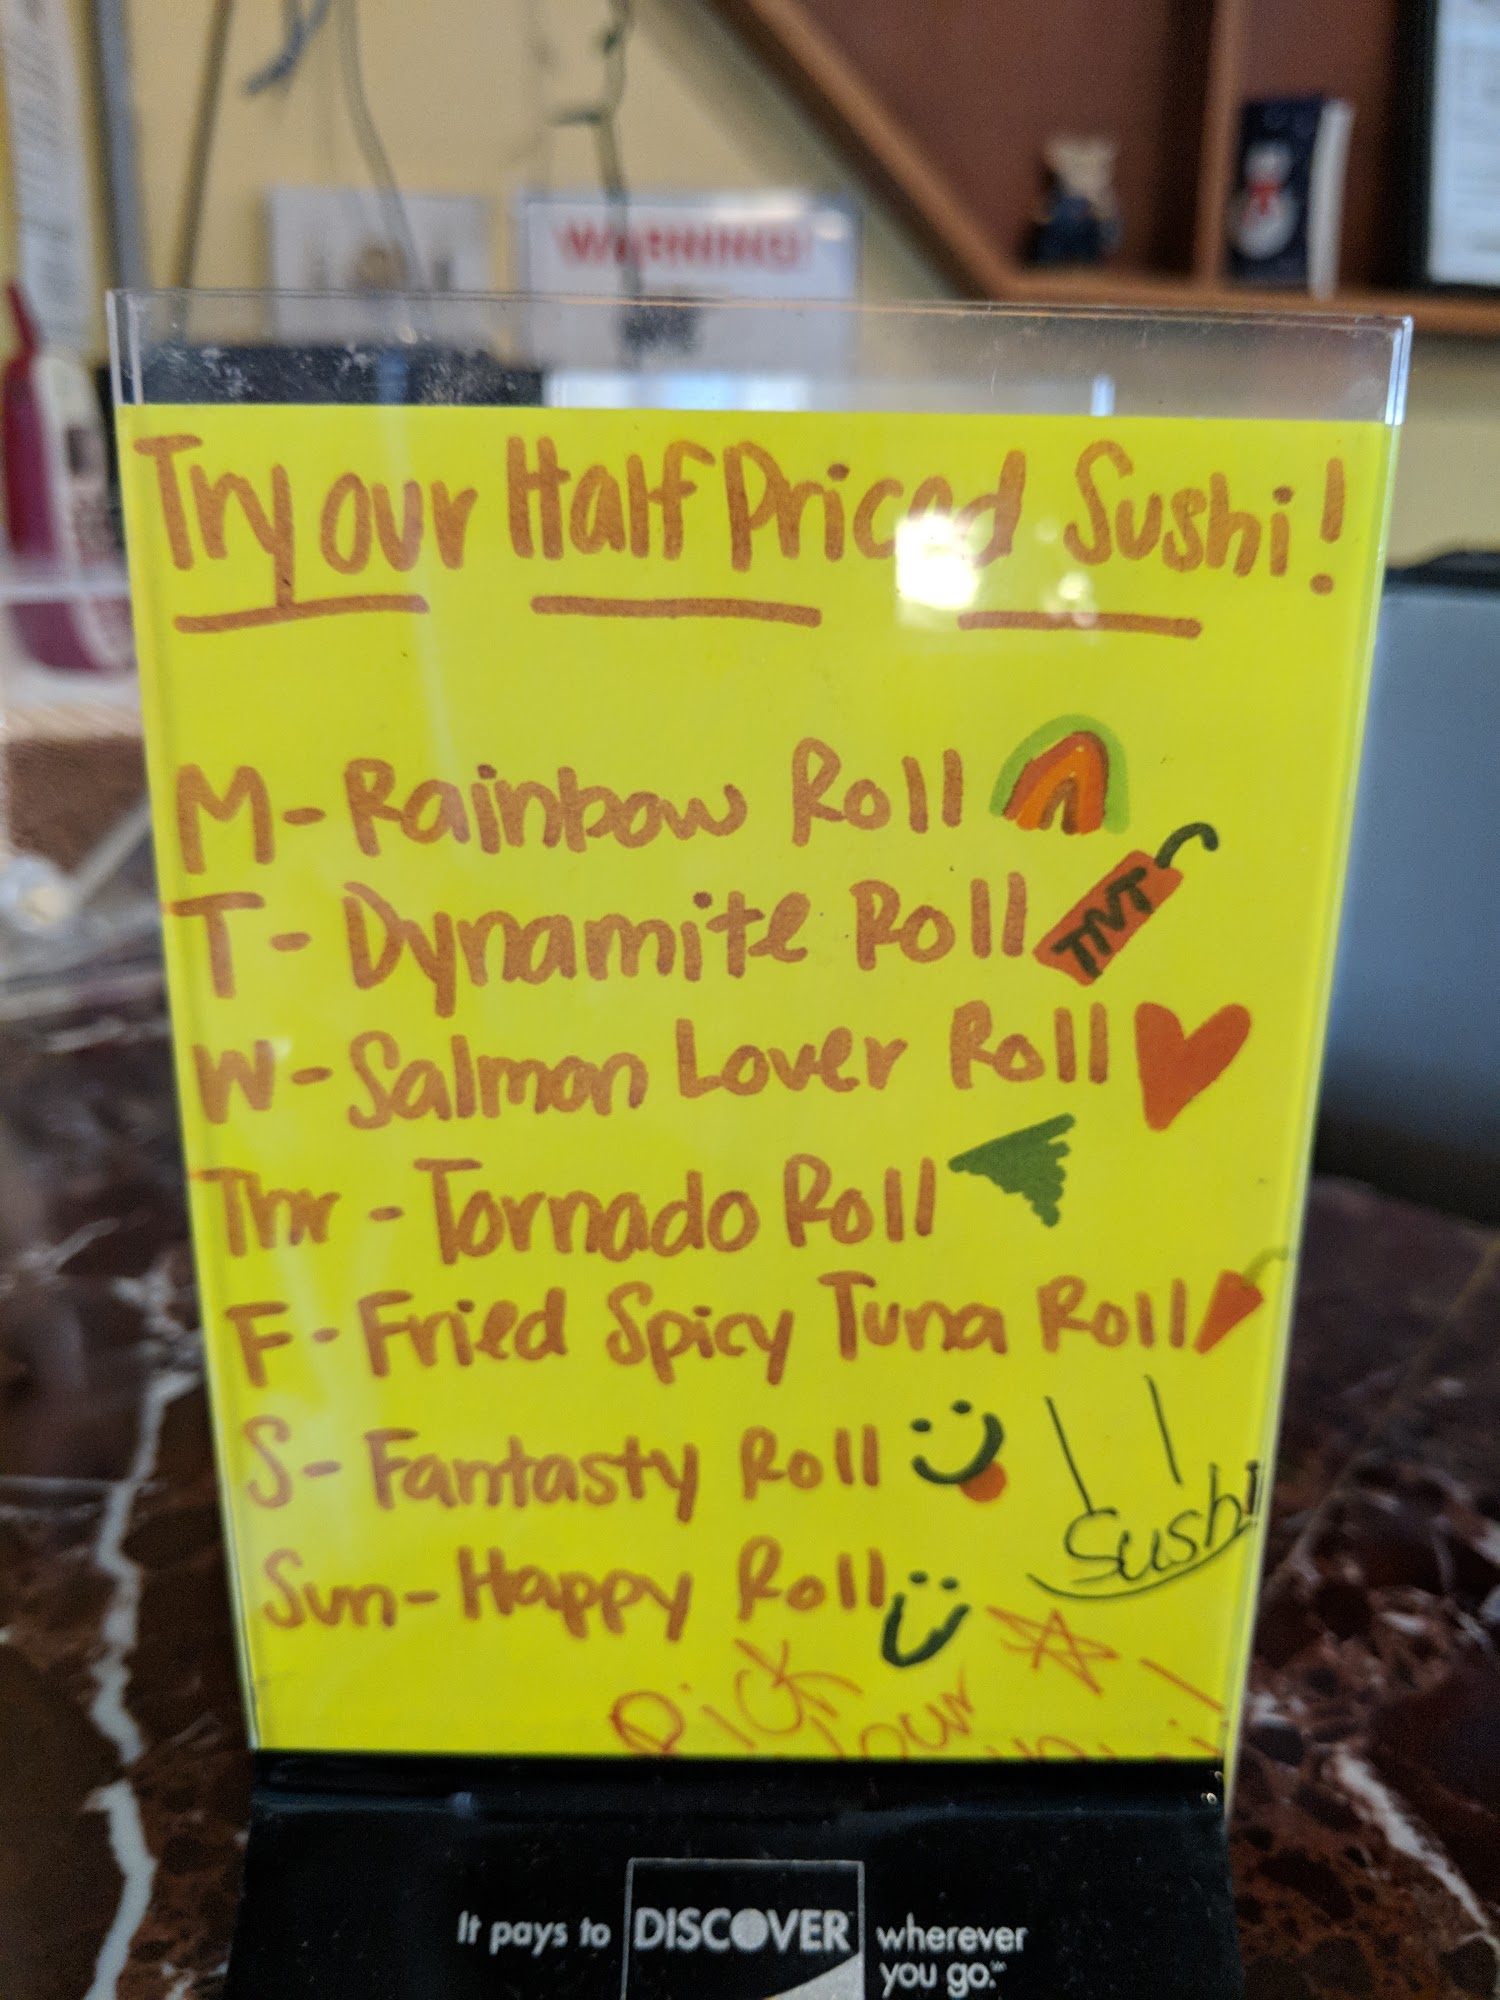 WARNING!
Try our Half Priced Sushi!
M- Rainbow Roll
T- Dynamite Roll
TNT
W- Salmon Lover Roll
Thr - Tornado Roll
F- Fried Spicy Tuna Roll
S- Fantasty Roll
Sushi
Sun- Happy Roll
Pick
your
It pays to DISCOVER wherever
you go.